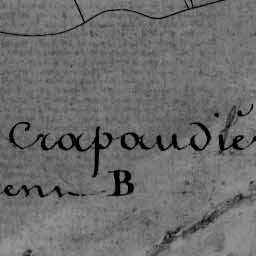 Crapaudie
enn B